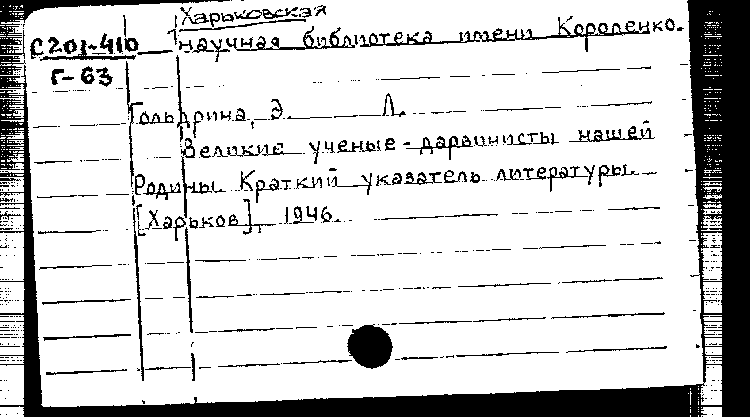 Харьковская
С201-410 научная библиотека имени Короленко.
Г-63
Гольдрина, Э. Л.
Великие ученые-дарвинисты нашей
Родины. Краткий указатель литературы.
[Харьков], 1946.